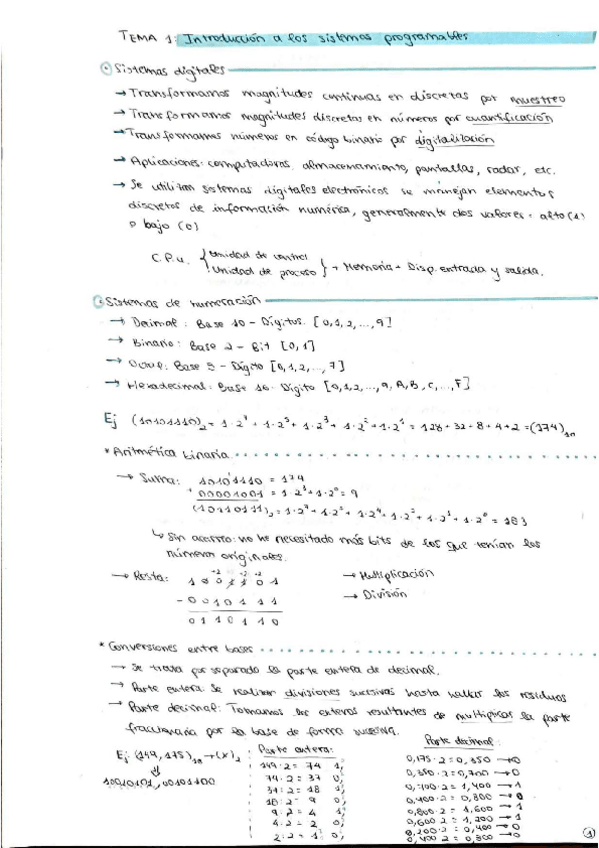 TEMA 1: Introducción a los sistemas programables
Sistemas digitales
→ Transformamos magnitudes continuas en discretas por muestreo
→ Transformamos magnitudes discretas en números por cuantificación
→ Transformamos números en código binario por digitalización
→ Aplicaciones: computadoras, almacenamiento, pantallas, radar, etc.
→ Se utilizan sistemas digitales electrónicos se manejan elementos
discretos de información numérica, generalmente dos valores: alto (1)
o bajo (0)
C.P.U. { Unidad de control
Unidad de proceso } + Memoria + Disp. entrada y salida.
Sistemas de numeración
→ Decimal: Base 10 - Dígitos [0,1,2,...,9]
→ Binario: Base 2 - Bit [0,1]
→ Octal: Base 8 - Dígito [0,1,2,...,7]
→ Hexadecimal: Base 16 - Dígito [0,1,2,...,9,A,B,C,...,F]
Ej (10101110)₂ = 1·2⁷ + 1·2⁵ + 1·2³ + 1·2² + 1·2¹ = 128 + 32 + 8 + 4 + 2 = (174)₁₀
* Aritmética binaria
→ Suma: 10101110 = 174
+ 00001001 = 1·2³ + 1·2⁰ = 9
(10110111)₂ = 1·2⁷ + 1·2⁵ + 1·2⁴ + 1·2² + 1·2¹ + 1·2⁰ = 183
↳ Sin acarreo: no he necesitado más bits de los que tenían los
números originales.
→ Resta: → Multiplicación
- 0010111 → División
0110110
* Conversiones entre bases
→ Se trata por separado la parte entera de decimal.
→ Parte entera: Se realizan divisiones sucesivas hasta hallar los residuos
→ Parte decimal: Tomamos los enteros resultantes de multiplicar la parte
fraccionaria por la base de forma sucesiva.
Ej (149,175)₁₀ → (x)₂
10010101,00101100
Parte entera:
149:2 = 74 1
74:2 = 37 0
37:2 = 18 1
18:2 = 9 0
9:2 = 4 1
4:2 = 2 0
2:2 = 1 0
Parte decimal:
0,175·2 = 0,350 → 0
0,350·2 = 0,700 → 0
0,700·2 = 1,400 → 1
0,400·2 = 0,800 → 0
0,800·2 = 1,600 → 1
0,600·2 = 1,200 → 1
0,200·2 = 0,400 → 0
0,400·2 = 0,800 → 0
1